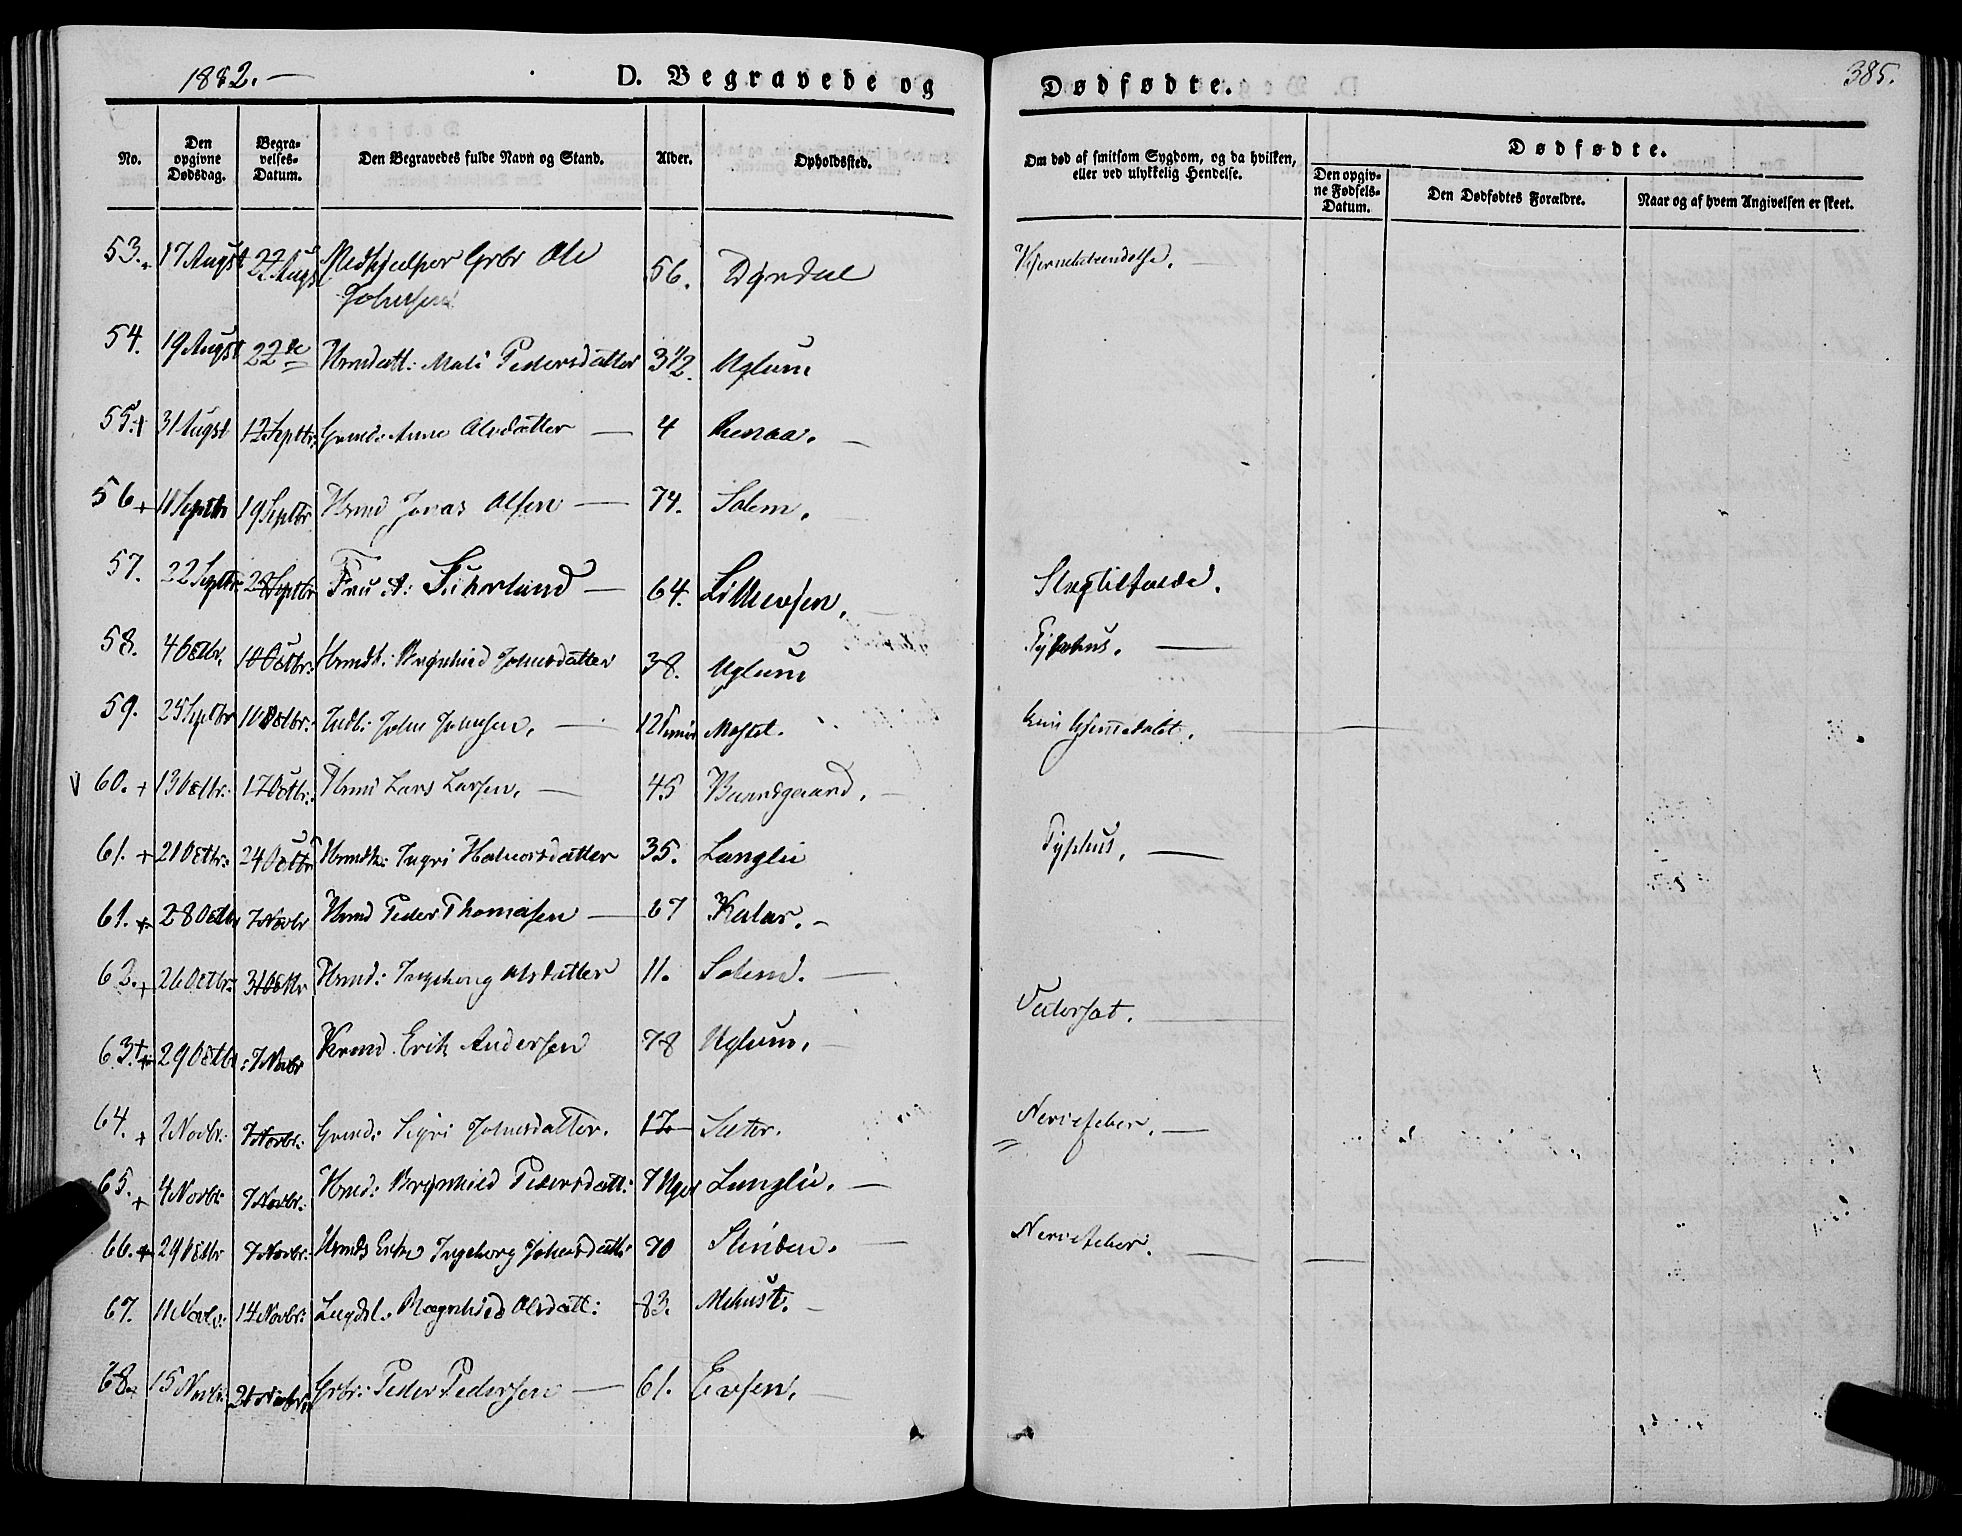 1882. —
D. Begravede og Dødfødte.
385.
No.
Den opgivne Dødsdag.
Begra-velses-Datum.
Den Begravedes fulde Navn og Stand.
Alder.
Opholdssted.
Om død af smitsom Sygdom, og da hvilken, eller ved ulykkelig Hendelse.
Dødfødte.
Den opgiv-ne Fødsels-Datum.
Den Dødfødtes Forældre.
Naar og af hvem Angivelsen er skeet.
53. 17 Augst 22 Augst Medhjelper Grbr Ole Johnsen 56. Dørdal
54. 19 Augst 22de Hrmdatt: Mali Pedersdatter 3 1/2. Uglum
55. + 31 Augst 12 Septbr: Grmd: Anne Olsdatter — 4 Renaa. —
56 + 11 Septbr 19 Septbr Hrmd Jonas Olsen — 74. Solem.
57. 22 Septbr Septbr Fru A: — 64. Slagtilfælde.
58. 4 Octbr. 10 Octbr: Hrmdk: Brynhild Johnsdatter 38. Uglum Typhus. —
59. 25 Septbr 10 Octbr: Indb: John Johnsen. — Mostel. kun hjemedøbt. —
60. + 13 Octbr: 17 Octbr: Hrmd Lars Larsen. — 45 Baardgaard. —
61. + 21 Octbr: 24 Octbr Hrmdk: Ingri Halvorsdatter 35. Langlie Typhus. —
61. + 28 Octbr 7 Novbr Hrmd Peder Thomesen — 67 Kalar. —
62. + 26 Octbr: 31 Octbr Hrmd: Ingeborg Olsdatter 11. Solem. — Vatersot. —
63. + 29 Octbr: 7 Novbr Hrmd. Erik Andersen 78 Uglum. —
64. + 2 Novbr: 7 Novbr: Grmd: Sigri Johnsdatter. 17. Sæter. Nervefeber. —
65. + 4 Novbr: 7 Novbr: Hrmd: Brynhild Pedersdatt: 7 Uger Langlie. —
66. + 29 Octbr 7 Novbr: Hrmds Enke Ingeborg Johnsdatt: 70 Slinden. — Nervefeber. —
67. 11 Novbr: 14 Novbr: Lægdsl. Ragnhild Olsdatt: 83. Mehust. —
68. 15 Novbr: 21 Novbr: Grbr: Peder Pedersen — 61. Evsen. —